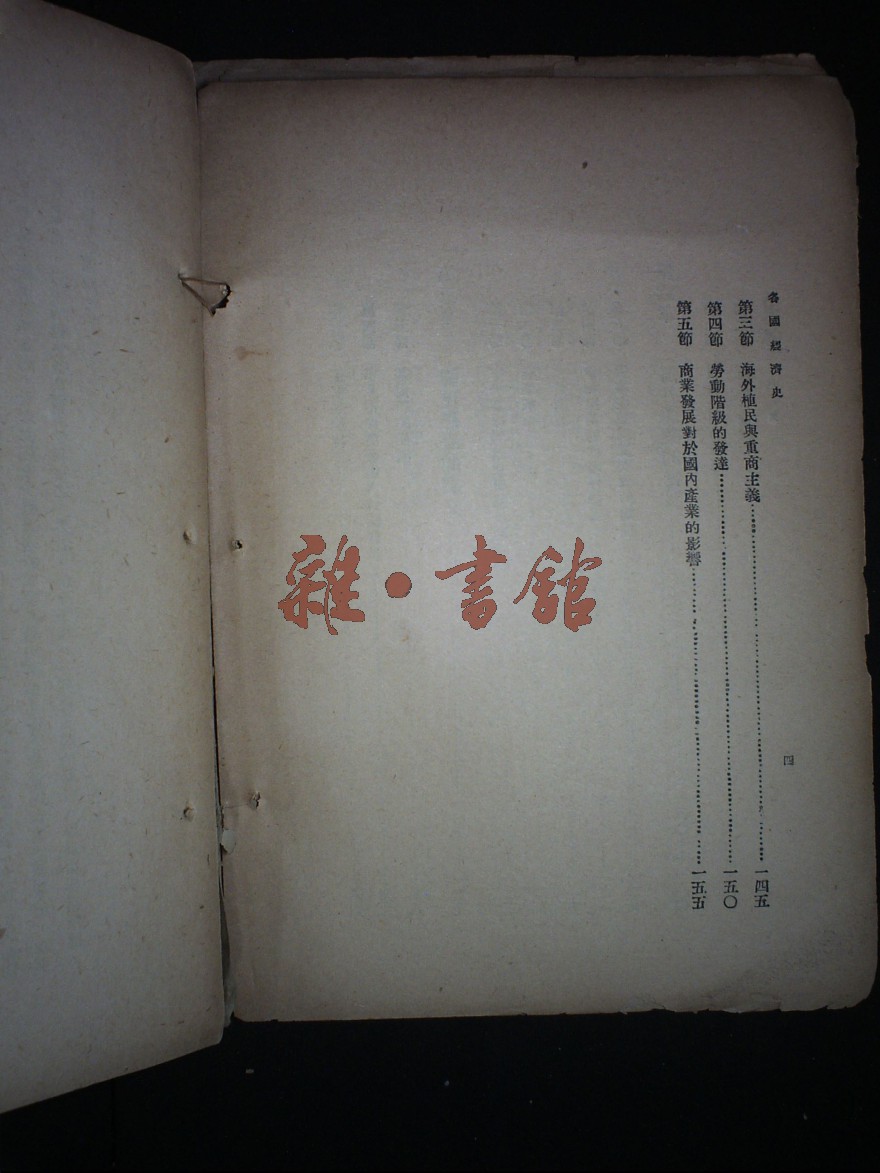 各國經濟史
第三節　海外植民與重商主義……一四五
第四節　勞動階級的發達……一五〇
第五節　商業發展對於國內產業的影響……一五五
四
雜·書館